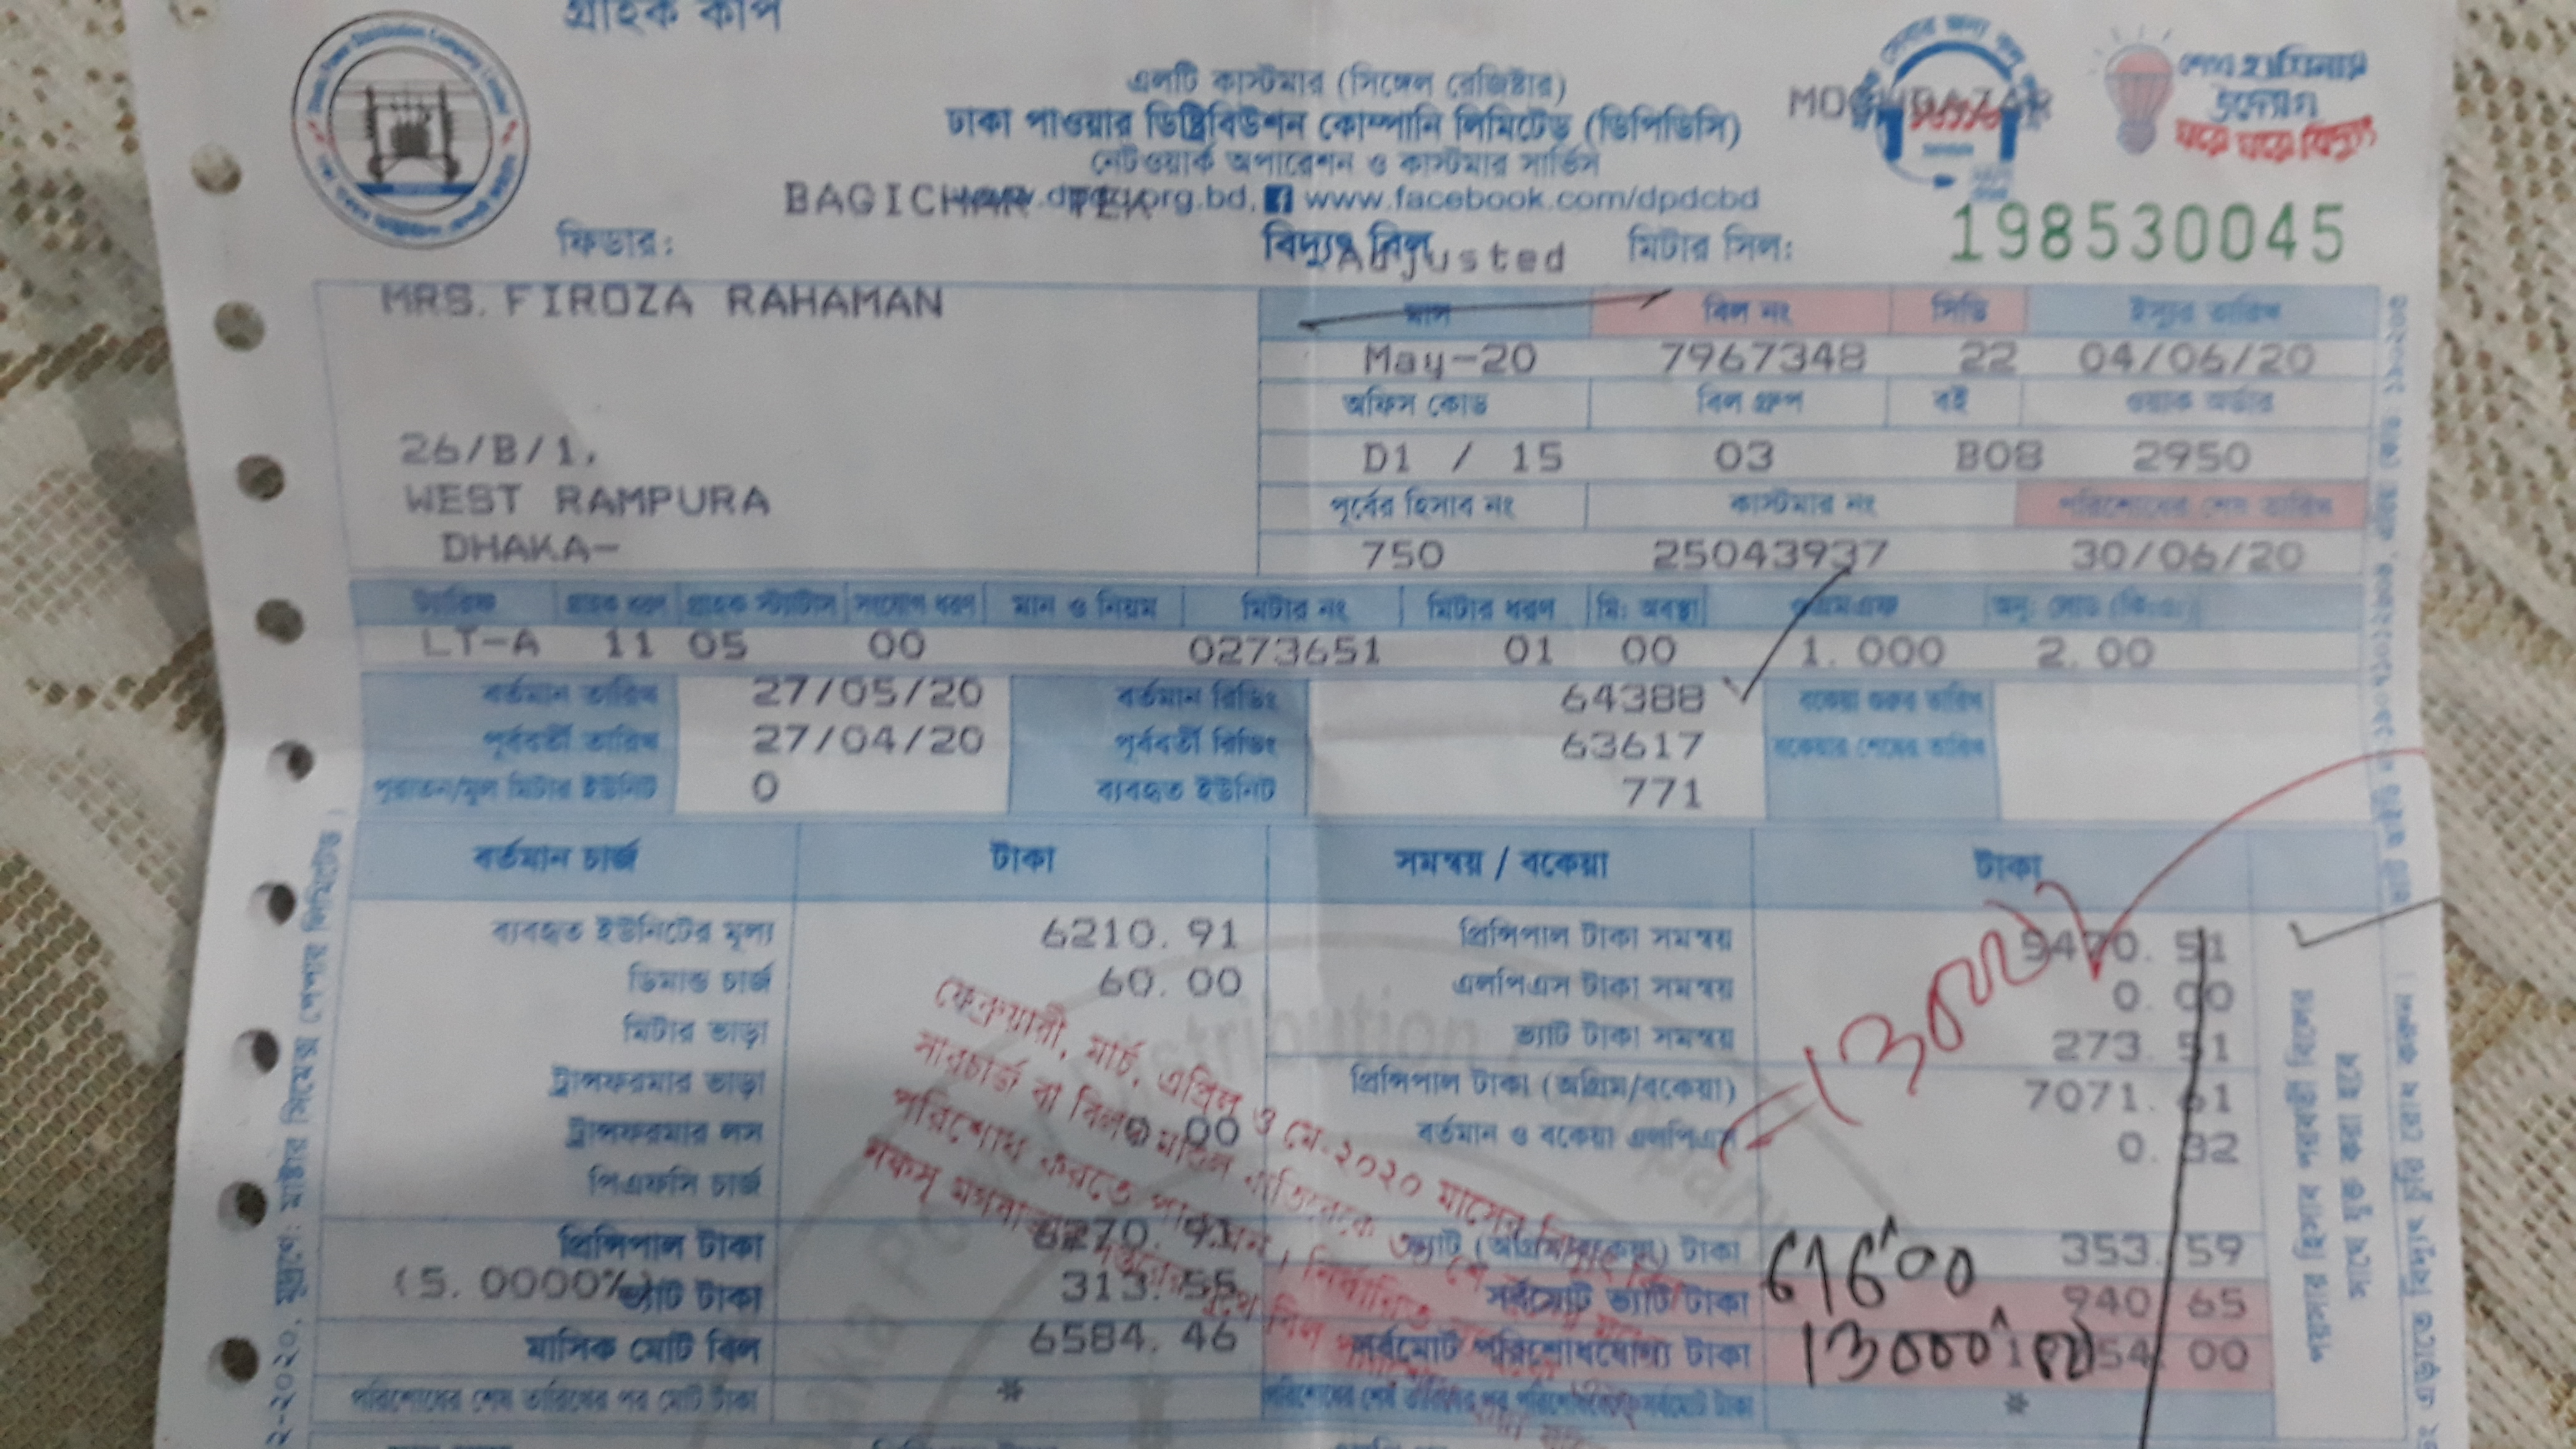 গ্রাহক কপি
এলটি কাস্টমার (সিঙ্গেল রেজিষ্টার)
ঢাকা পাওয়ার ডিষ্ট্রিবিউশন কোম্পানি লিমিটেড (ডিপিডিসি)
নেটওয়ার্ক অপারেশন ও কাস্টমার সার্ভিস
BAGICHAR TEK www.dpdc.org.bd, www.facebook.com/dpdcbd
শেখ হাসিনার
উদ্যোগ
ঘরে ঘরে বিদ্যুৎ
ফিডার: বিদ্যুৎ বিল Adjusted মিটার সিল: 198530045
MRS. FIROZA RAHAMAN
26/B/1,
WEST RAMPURA
DHAKA-
মাস বিল নং সিডি ইস্যুর তারিখ
May-20 7967348 22 04/06/20
অফিস কোড বিল গ্রুপ বই ওয়াক অর্ডার
D1 / 15 03 B08 2950
পূর্বের হিসাব নং কাস্টমার নং পরিশোধের শেষ তারিখ
750 25043937 30/06/20
ট্যারিফ গ্রাহক ধরণ গ্রাহক স্ট্যাটাস সংযোগ ধরণ মান ও নিয়ম মিটার নং মিটার ধরণ মি: অবস্থা ওএমএফ অনু: লোড (কি:ও:)
LT-A 11 05 00 0273651 01 00 1.000 2.00
বর্তমান তারিখ 27/05/20 বর্তমান রিডিং 64388 বকেয়া শুরুর তারিখ
পূর্ববর্তী তারিখ 27/04/20 পূর্ববর্তী রিডিং 63617 বকেয়ার শেষের তারিখ
পুরাতন/মূল মিটার ইউনিট 0 ব্যবহৃত ইউনিট 771
বর্তমান চার্জ টাকা সমন্বয় / বকেয়া টাকা
ব্যবহৃত ইউনিটের মূল্য 6210.91 প্রিন্সিপাল টাকা সমন্বয় 9470.51
ডিমান্ড চার্জ 60.00 এলপিএস টাকা সমন্বয় 0.00
মিটার ভাড়া ভ্যাট টাকা সমন্বয় 273.51
ট্রান্সফরমার ভাড়া প্রিন্সিপাল টাকা (অগ্রিম/বকেয়া) 7071.61
ট্রান্সফরমার লস 0.00 বর্তমান ও বকেয়া এলপিএস 0.32
পিএফসি চার্জ
প্রিন্সিপাল টাকা 6270.91 ভ্যাট (অগ্রিম/বকেয়া) টাকা 353.59
(5.0000%) ভ্যাট টাকা 313.55 সর্বমোট ভ্যাট টাকা 940.65
মাসিক মোট বিল 6584.46 সর্বমোট পরিশোধযোগ্য টাকা 13000
পরিশোধের শেষ তারিখের পর মোট টাকা * পরিশোধের শেষ তারিখের পর পরিশোধযোগ্য সর্বমোট টাকা *
ফেব্রুয়ারী, মার্চ, এপ্রিল ও মে-২০২০ মাসের
সারচার্জ বা বিলম্ব মাশুল ব্যতিরেকে
পরিশোধ করতে পারবেন। নির্ধারিত